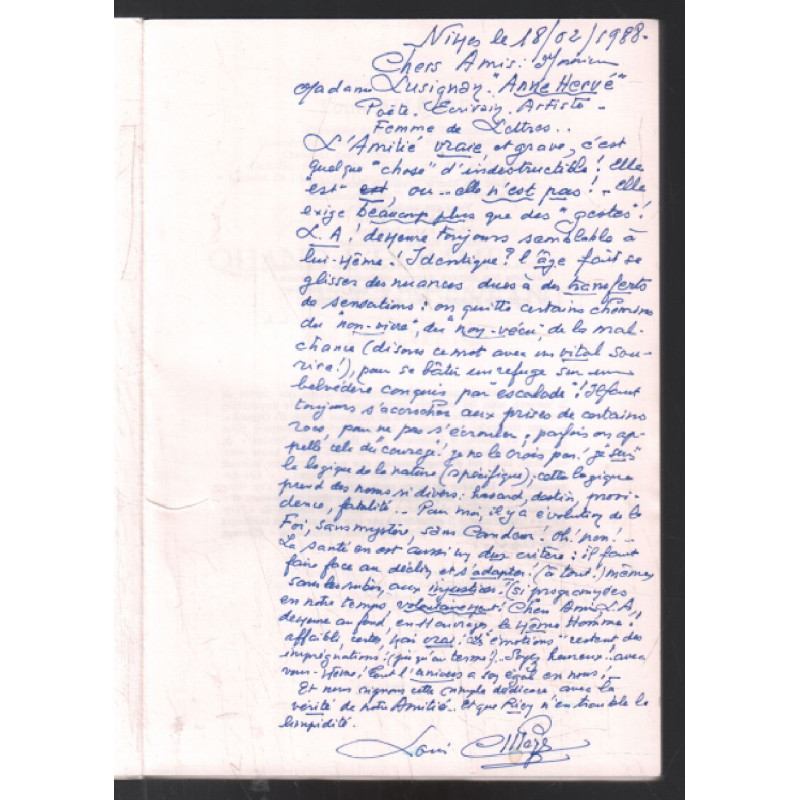 Nîmes le 18/02/1988.
Chers Amis: Monsieur
Madame Lusignan. "Anne Hervé"
Poète. Ecrivain. Artiste -
Femme de Lettres..
L'Amitié vraie, et grave, c'est
quelque "chose" d'indestructible! Elle
"est" est, ou .. elle n'est pas! - Elle
exige beaucoup plus que des "gestes"!
L.A! demeure toujours semblable à
lui-même! Identique? l'âge fait se
glisser des nuances dues à des transferts
de sensations: on quitte certains chemins
du "non-vivre", du "non-vécu", de la mal-
chance (disons ce mot avec un vital sou-
rire!), pour se bâtir un refuge sur un
belvédère conquis par "escalade"! Il faut
toujours s'accrocher aux prises de certains
rocs, pour ne pas s'écrouler; parfois on ap-
pelle cela du courage! je ne le crois pas! je "suis"
la logique de la nature (spécifique); cette logique
prend des noms si divers: hasard, destin, provi-
dence, fatalité... Pour moi, il y a évolution de la
Foi, sans mystère, sans Candeur! Oh! non! -
La santé en est aussi un dur critère: il faut
faire face au déclin et s'adapter! (à tout!) même
sans les subir, aux injustices! (si programmées
en notre temps, volontairement! Chers Amis L.A,
demeure au fond, en Hauteur, le Même Homme:
affaibli certes, mais vrai! Les "émotions" restent des
imprégnations! (jusqu'au terme!).. Soyez heureux.. avec
vous-même! tout l'univers a son égal en nous! -
Et nous signons cette simple dédicace avec la
vérité de notre Amitié.. Et que Rien n'en trouble la
limpidité.